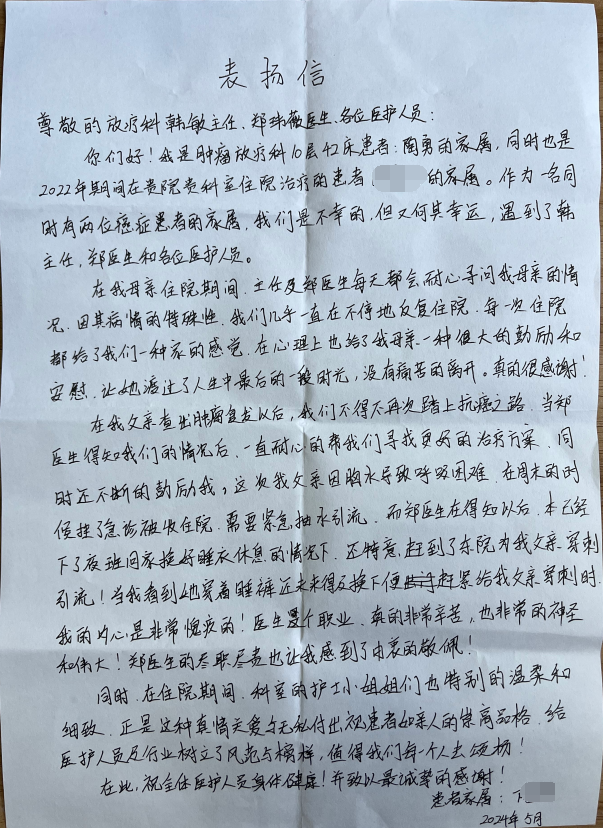 表扬信
尊敬的放疗科韩敏主任、郑玮薇医生、各位医护人员：
你们好！我是肿瘤放疗科10层42床患者：陶勇的家属，同时也是
2022年期间在贵院贵科室住院治疗的患者 的家属。作为一名同
时有两位癌症患者的家属，我们是不幸的，但又何其幸运，遇到了韩
主任、郑医生和各位医护人员。
在我母亲住院期间，主任及郑医生每天都会耐心寻问我母亲的情
况，因其病情的特殊性，我们几乎一直在不停地反复住院，每一次住院
都给了我们一种家的感觉，在心理上也给了我母亲一种很大的鼓励和
安慰，让她渡过了人生中最后的一段时光，没有痛苦的离开。真的很感谢！
在我父亲查出肿瘤复发以后，我们不得不再次踏上抗癌之路，当郑
医生得知我们的情况后，一直耐心的帮我们寻找更好的治疗方案，同
时还不断的鼓励我，这次我父亲因胸水导致呼吸困难，在周末的时
候挂了急诊被收住院，需要紧急抽水引流，而郑医生在得知以后，本已经
下了夜班回家换好睡衣休息的情况下，还特意赶到了东院为我父亲穿刺
引流！当我看到她穿着睡裤还未来得及换下便赶紧给我父亲穿刺时，
我的内心是非常愧疚的！医生这个职业，真的非常辛苦，也非常的神经
和伟大！郑医生的尽职尽责也让我感到了由衷的敬佩！
同时，在住院期间，科室的护士小姐姐们也特别的温柔和
细致，正是这种真情关爱与无私付出，视患者如亲人的崇高品格，给
医护人员及行业树立了风范与榜样，值得我们每个人去颂扬！
在此，祝全体医护人员身体健康！并致以最诚挚的感谢！
患者家属：
2024年5月